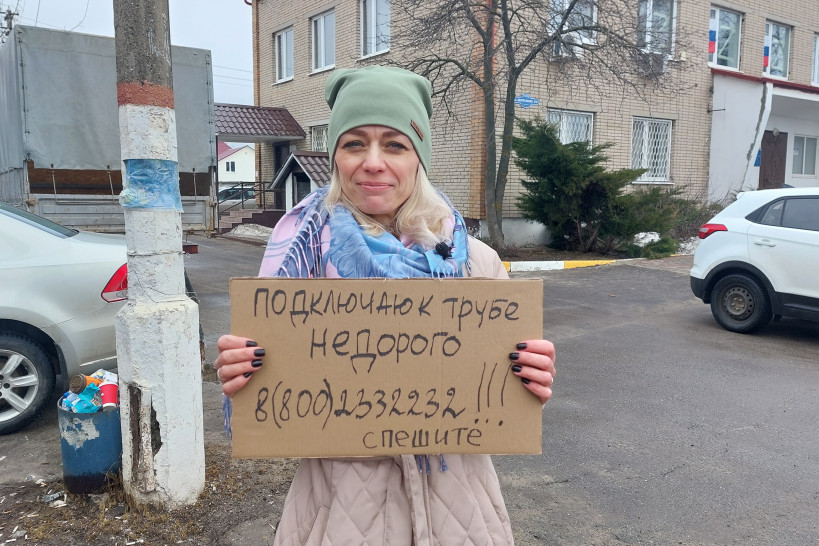 подключаю к трубе
недорого
8(800)2332232!!!
спешите